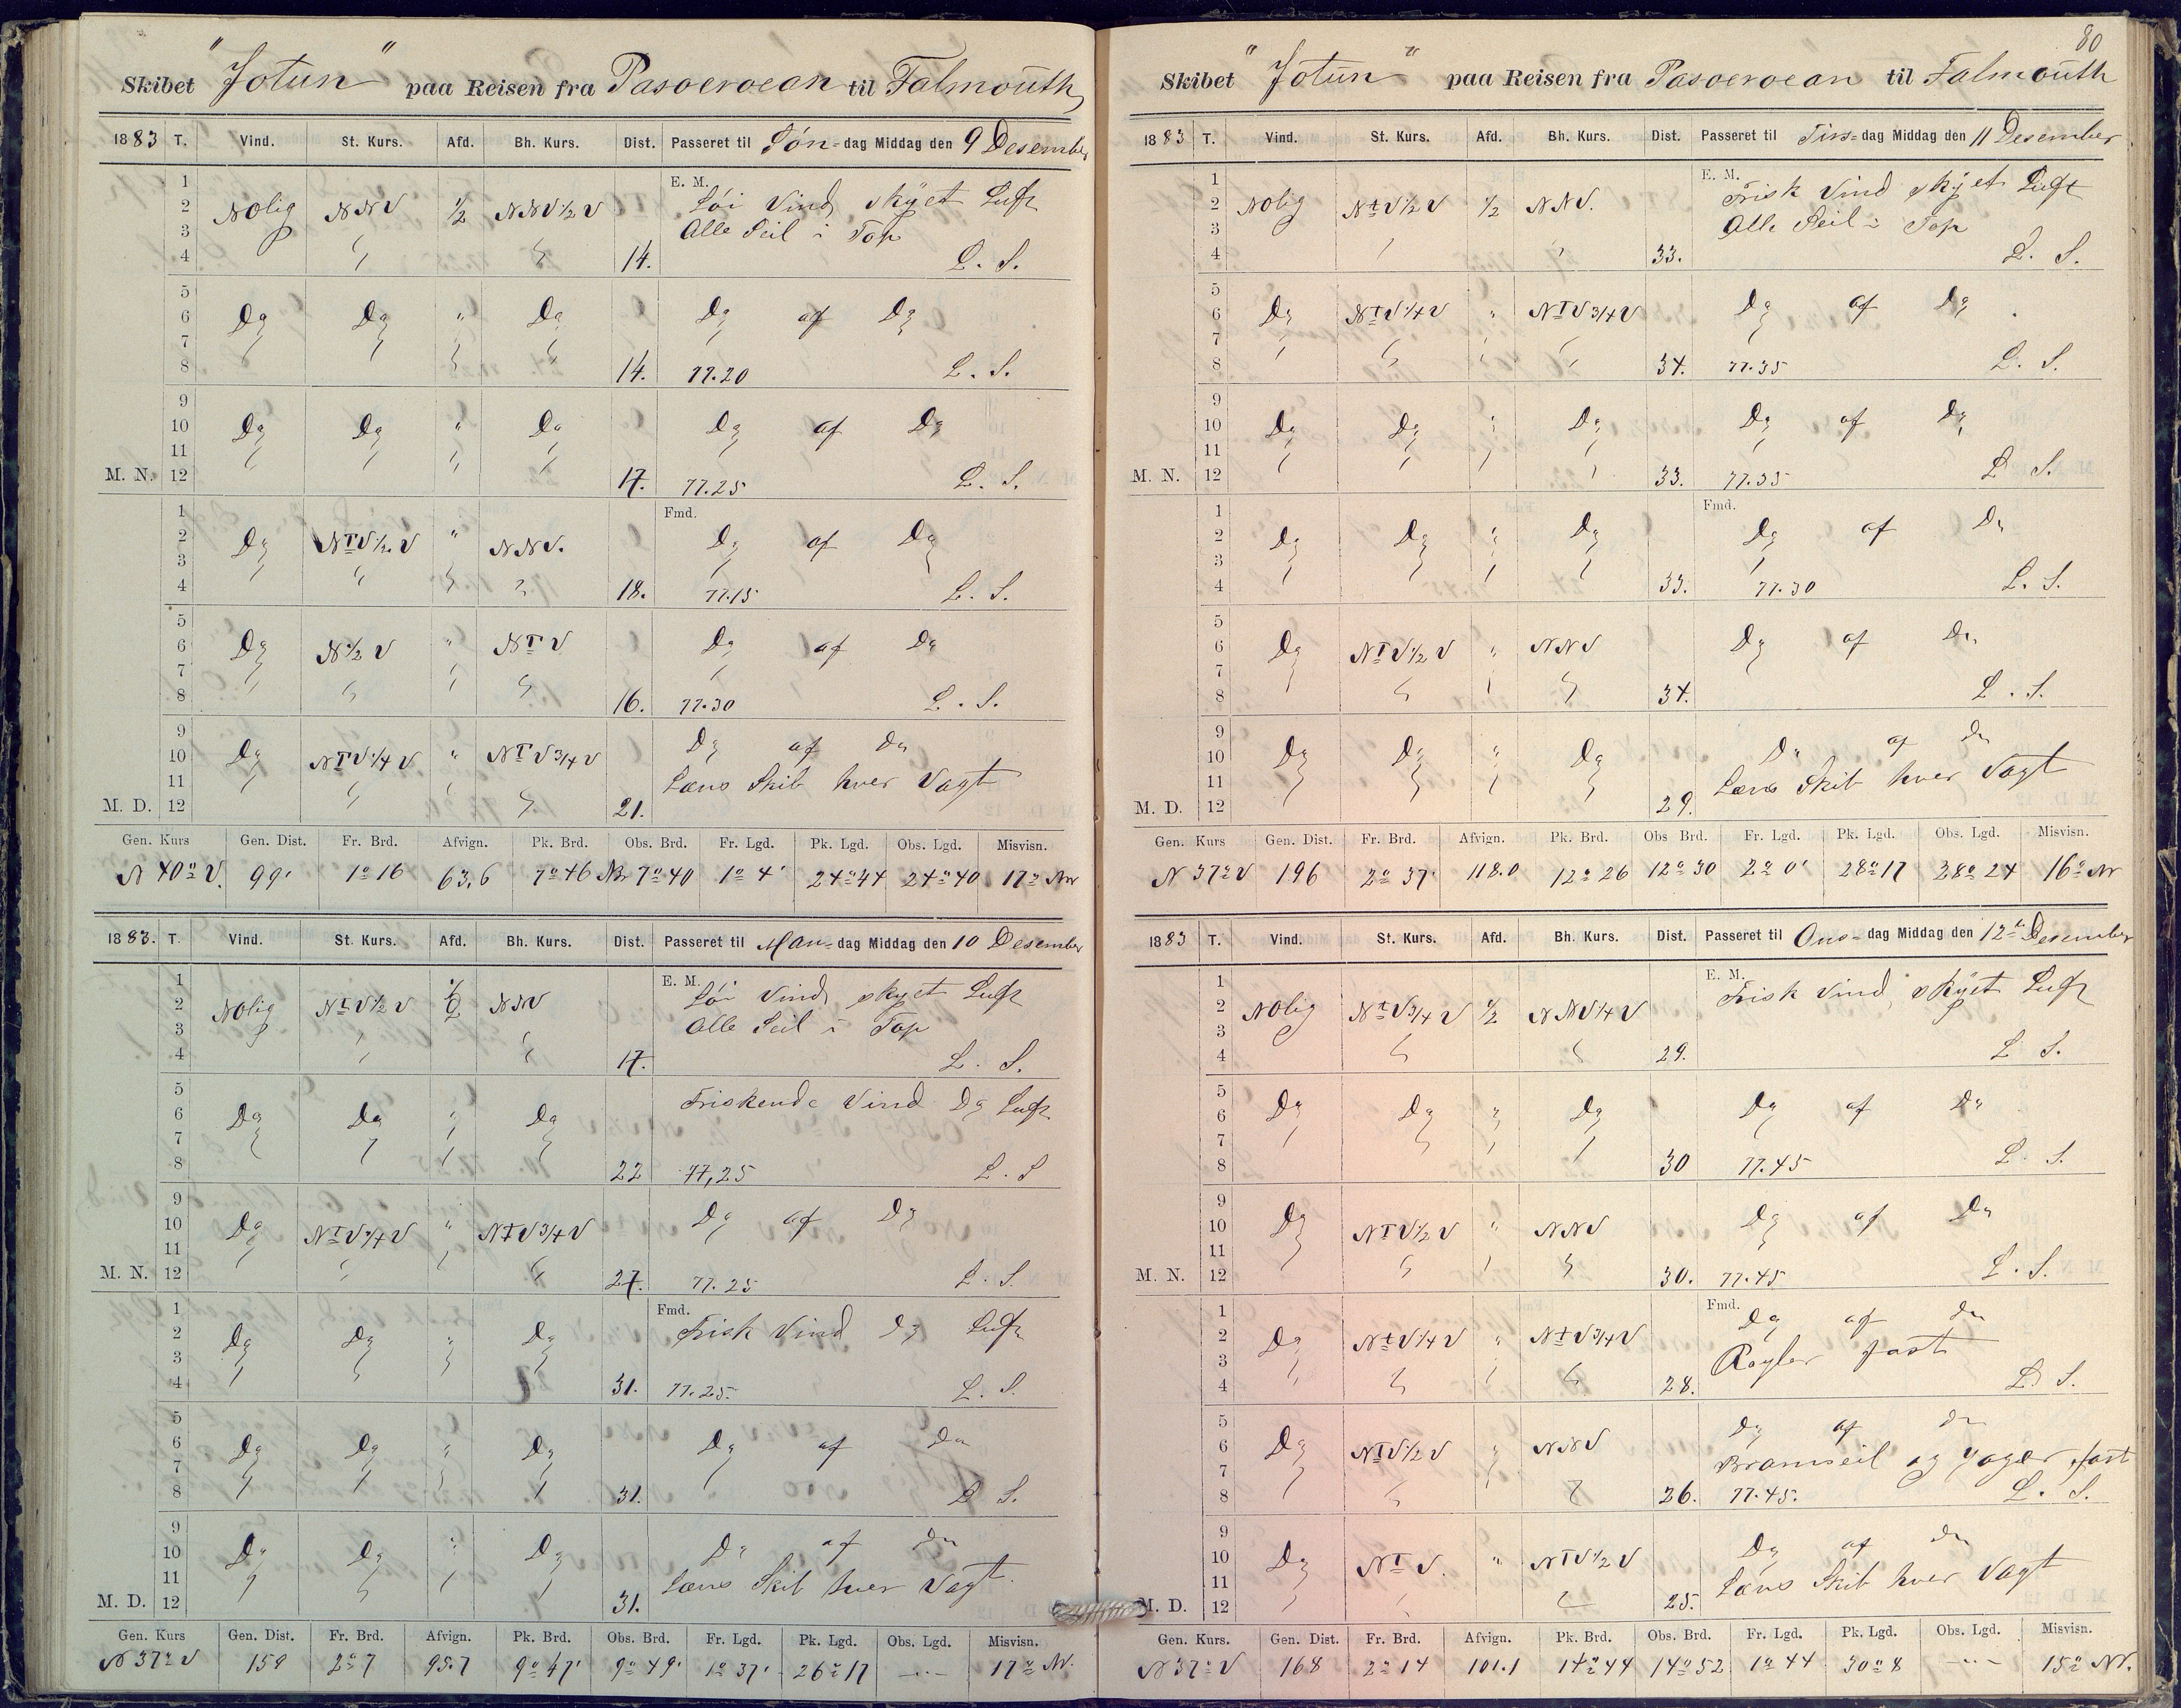 Skibet "Jotun" paa Reisen fra Pasoeroean til Falmouth
1883 T. Vind. St. Kurs. Afd. Bh. Kurs. Dist. Passeret til Søn-dag Middag den 9 Desember
1
2 NOlig NNV 1/2 NNV1/2V E. M. Løi Vind, skyet Luft
3 Alle Seil i Top
4 14. L. S.
5
6 Do Do " Do Do af Do
7
8 14. 77.20 L. S.
9
10 Do Do " Do Do af Do
11
M. N. 12 17. 77.25 L. S.
1 Fmd.
2 Do NTV1/2V " NNV. Do af Do
3
4 18. 77.15 L. S.
5
6 Do N1/2V " NTV Do af Do
7
8 16. 77.30 L. S.
9
10 Do NTV1/4V " NTV3/4V Do af Do
11 Læns Skib hver Vagt
M. D. 12 21.
Gen. Kurs Gen. Dist. Fr. Brd. Afvign. Pk. Brd. Obs. Brd. Fr. Lgd. Pk. Lgd. Obs. Lgd. Misvisn.
N 40° V. 99' 1° 16 63,6 7° 46 Br 7° 40 1° 4' 24° 44 24° 40 17° Nv
1883. T. Vind. St. Kurs. Afd. Bh. Kurs. Dist. Passeret til Man-dag Middag den 10 Desember
1 E. M.
2 NOlig NtV1/2V 1/2 NNV Løi Vind, skyet Luft
3 Alle Seil i Top
4 17. L. S.
5
6 Do Do " Do Friskende Vind Do Luft
7
8 22 77,25 L. S
9
10 Do NTV3/4V " NtV3/4V Do af Do
11
M. N. 12 27. 77.25 L. S.
1 Fmd.
2 Do Do " Do Frisk Vind Do Luft
3
4 31. 77.25. L. S.
5
6 Do Do " Do Do af Do
7
8 31. L S.
9
10 Do Do " Do Do af Do
11 Læns Skib hver Vagt.
M. D. 12 31.
Gen. Kurs Gen. Dist. Fr. Brd. Afvign. Pk. Brd. Obs. Brd. Fr. Lgd. Pk. Lgd. Obs. Lgd. Misvisn.
N 37° V 159 2° 7 95.7 9° 47' 9° 49' 1° 37' 26° 17 -..- 17° Nv.
80
Skibet "Jotun" paa Reisen fra Pasoeroean til Falmouth
1883 T. Vind. St. Kurs. Afd. Bh. Kurs. Dist. Passeret til Tirs-dag Middag den 11 Desember
1 E. M.
2 NOlig NtV1/2V 1/2 NNV. Frisk Vind skyet Luft
3 Alle Seil i Top
4 33. L. S.
5
6 Do NTV1/4V " NTV3/4V Do af Do
7
8 34. 77.35 L. S.
9
10 Do Do " Do Do af Do
11
M. N. 12 33. 77.35 L S.
1 Fmd.
2 Do Do " Do Do af Do
3
4 33. 77.30 L. S.
5
6 Do NTV1/2V " NNV Do af Do
7
8 34. L. S.
9
10 Do Do " Do Do af Do
11 Læns Skib hver Vagt
M. D. 12 29.
Gen. Kurs Gen. Dist. Fr. Brd. Afvign. Pk. Brd. Obs Brd. Fr. Lgd. Pk. Lgd. Obs. Lgd. Misvisn.
N 37° V 196 2° 37' 118.0 12° 26 12° 30 2° 0' 28° 17 28° 24 16° Nv
1883 T. Vind. St. Kurs. Afd. Bh. Kurs. Dist. Passeret til Ons-dag Middag den 12te Desember
1 E. M.
2 NOlig NtV3/4V 1/2 NNV1/4V Frisk Vind, skyet Luft
3
4 29. L S.
5
6 Do Do " Do Do af Do
7
8 30 77.45 L. S.
9
10 Do NTV1/2V " NNV Do af Do
11
M. N. 12 30. 77.45 L. S.
1 Fmd. Do af Do
2 Do NtV1/4V " NtV3/4V
3 Røyler fast
4 28. L. S.
5 Do af Do
6 Do NTV1/2V " NNV
7 Bramseil og Jager fast
8 26. 77.45. L. S.
9
10 Do NTV. " NTV1/2V Do af Do
11 Læns Skib hver Vagt
M. D. 12 25.
Gen. Kurs. Gen. Dist. Fr. Brd. Afvign. Pk. Brd. Obs. Brd. Fr. Lgd. Pk. Lgd. Obs. Lgd. Misvisn.
N 37° V 168 2° 14 101.1 14° 44 14° 52 1° 44 30° 8 -..- 15° Nv.